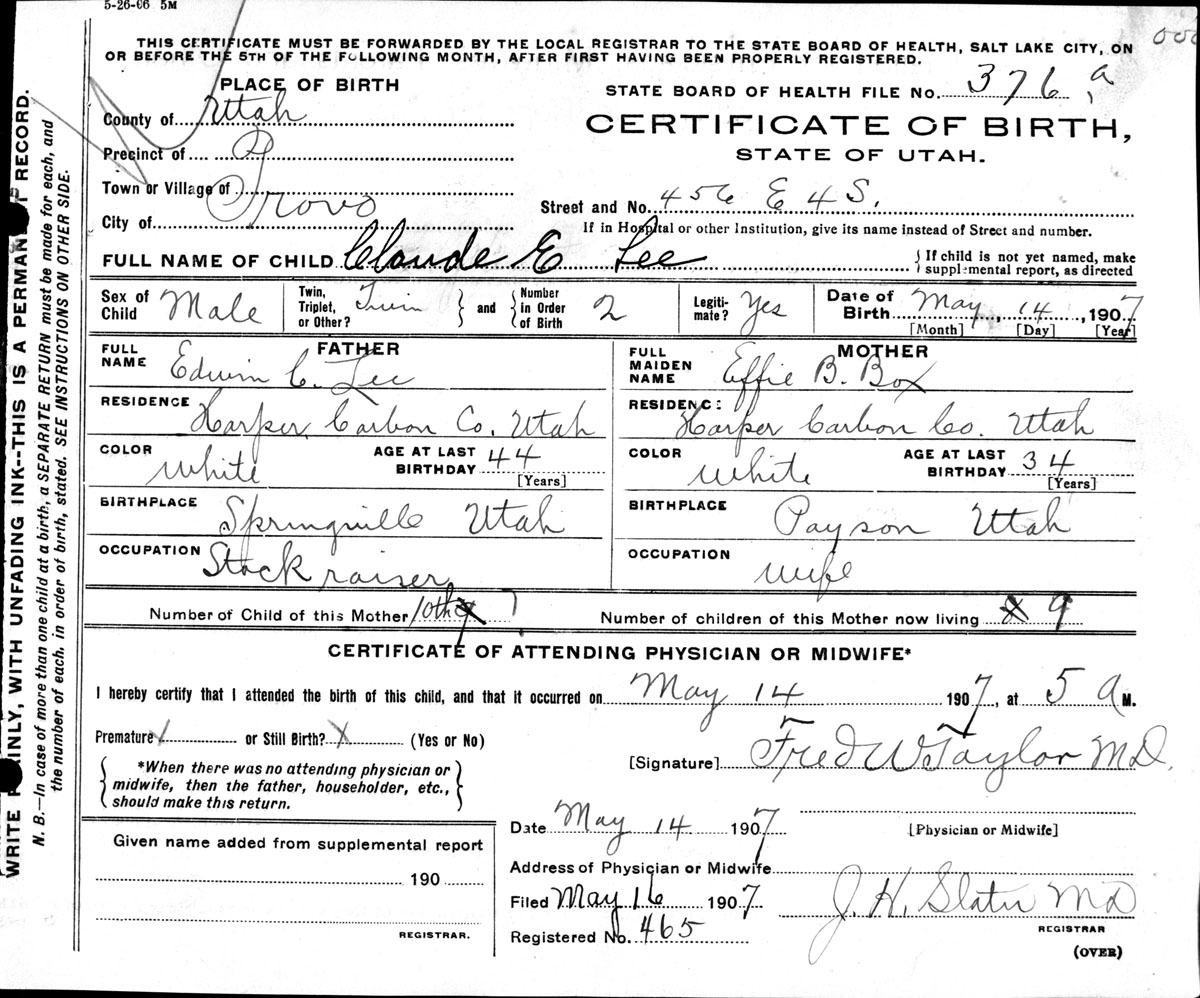 5-26-06 5M
THIS CERTIFICATE MUST BE FORWARDED BY THE LOCAL REGISTRAR TO THE STATE BOARD OF HEALTH, SALT LAKE CITY, ON
OR BEFORE THE 5TH OF THE FOLLOWING MONTH, AFTER FIRST HAVING BEEN PROPERLY REGISTERED.
PLACE OF BIRTH
County of Utah
Precinct of
Town or Village of
City of Provo
STATE BOARD OF HEALTH FILE No. 376 a
CERTIFICATE OF BIRTH,
STATE OF UTAH.
Street and No. 456 E 4 S.
If in Hospital or other Institution, give its name instead of Street and number.
FULL NAME OF CHILD Claude E Lee
{ If child is not yet named, make
supplemental report, as directed
Sex of Child Male
Twin, Triplet, or Other? Twin } and { Number in Order of Birth 2
Legiti-mate? Yes
Date of Birth May, 14, 1907
[Month] [Day] [Year]
FATHER
FULL NAME Edwin C. Lee
RESIDENCE Harper Carbon Co. Utah
COLOR White AGE AT LAST BIRTHDAY 44
[Years]
BIRTHPLACE Springville Utah
OCCUPATION Stock raiser
MOTHER
FULL MAIDEN NAME Effie B. Box
RESIDENCE Harper Carbon Co. Utah
COLOR White AGE AT LAST BIRTHDAY 34
[Years]
BIRTHPLACE Payson Utah
OCCUPATION wife
Number of Child of this Mother 10th
Number of children of this Mother now living 8 9
CERTIFICATE OF ATTENDING PHYSICIAN OR MIDWIFE*
I hereby certify that I attended the birth of this child, and that it occurred on May 14 1907, at 5 A M.
Premature or Still Birth? X (Yes or No)
{ *When there was no attending physician or
midwife, then the father, householder, etc.,
should make this return. }
[Signature] Fred W Taylor MD.
Date May 14 1907
[Physician or Midwife]
Address of Physician or Midwife
Given name added from supplemental report
190
REGISTRAR.
Filed May 16 1907
J. H. Slater MD
REGISTRAR
Registered No. 465
(OVER)
WRITE PLAINLY, WITH UNFADING INK--THIS IS A PERMANENT RECORD.
N. B.—In case of more than one child at a birth, a SEPARATE RETURN must be made for each, and
the number of each, in order of birth, stated. SEE INSTRUCTIONS ON OTHER SIDE.